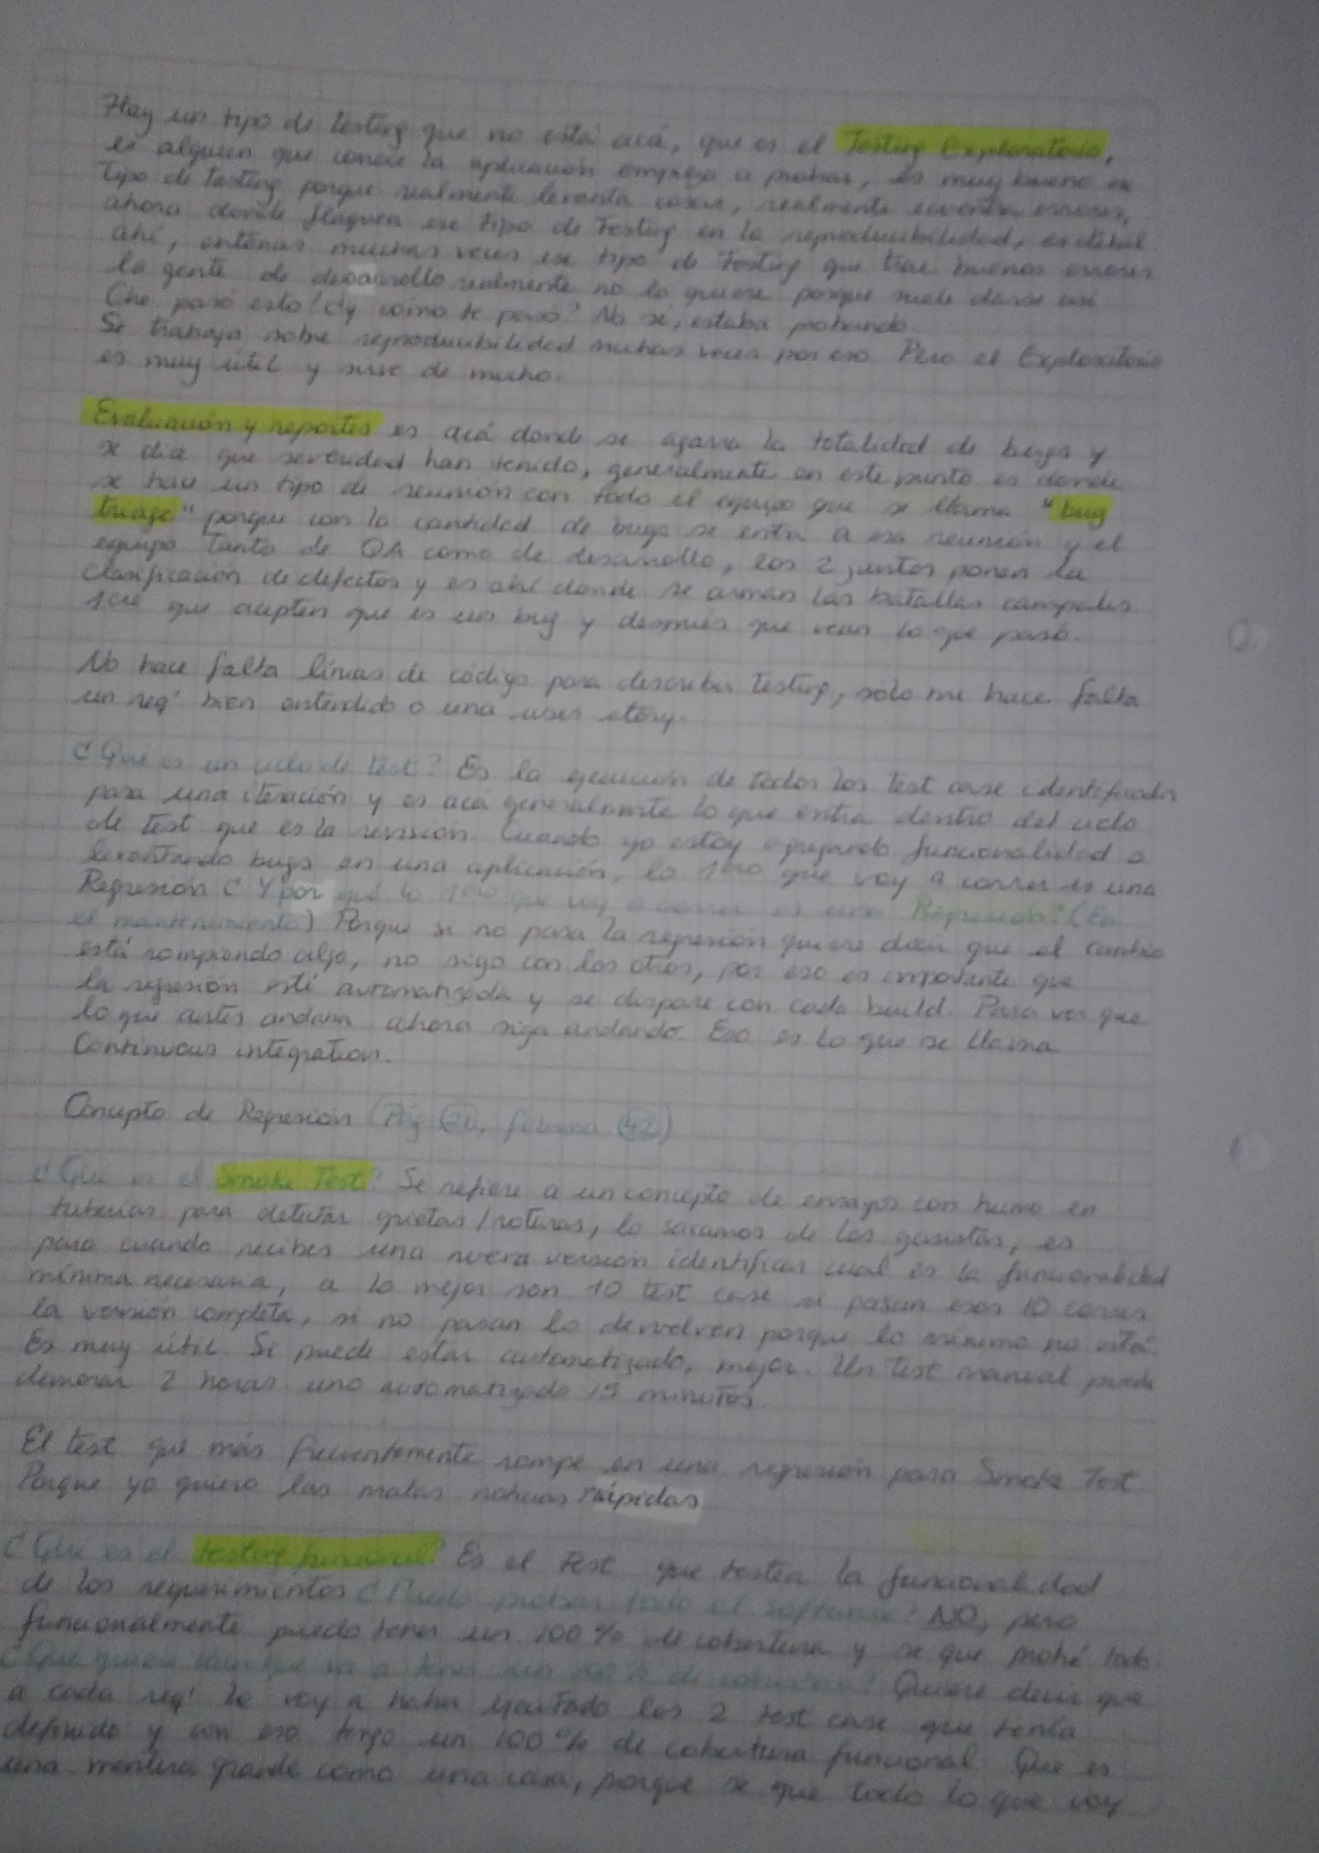 Hay un tipo de testing que no está acá, que es el Testing Exploratorio,
es alguien que conoce la aplicación empieza a probar, es muy bueno ese
Tipo de Testing porque realmente levanta cosas, realmente encuentra errores,
ahora donde flaquea ese tipo de Testing en la reproducibilidad, es débil
ahí, entonces muchas veces ese tipo de Testing que trae buenos errores
la gente de desarrollo realmente no lo quiere porque suele darse así
Che pasó esto! ¿y cómo te pasó? No se, estaba probando.
Se trabaja sobre reproducibilidad muchas veces por eso. Pero el Exploratorio
es muy útil y sirve de mucho.
Evaluación y reportes es acá donde se agarra la totalidad de bugs y
se dice que severidad han tenido, generalmente en este punto es donde
se hace un tipo de reunión con todo el equipo que se llama "bug
triage" porque con la cantidad de bugs se entra a esa reunión y el
equipo Tanto de QA como de desarrollo, los 2 juntos ponen la
clasificación de defectos y es ahí donde se arman las batallas campales
1ero que acepten que es un bug y después que vean lo que pasó.
No hace falta líneas de código para describir Testing, sólo me hace falta
un req' bien entendido o una user story.
¿Que es un ciclo de test? Es la ejecución de todos los test case identificados
para una iteración y es acá generalmente lo que entra dentro del ciclo
de test que es la revisión. Cuando yo estoy agregando funcionalidad o
levantando bugs en una aplicación, lo 1ero que voy a correr es una
Regresión ¿Y por qué lo 1ero que voy a correr es una Regresión? (En
el mantenimiento) Porque si no pasa la regresión quiere decir que el cambio
está rompiendo algo, no sigo con los otros, por eso es importante que
la regresión esté automatizada y se dispare con cada build. Para ver que
lo que antes andaba ahora siga andando. Eso es lo que se llama
Continuous integration.
Concepto de Regresión (Pág
¿Que es el Smoke Test? Se refiere a un concepto de ensayos con humo en
tuberías para detectar grietas/roturas, lo sacamos de los gasistas, es
para cuando recibes una nueva versión identificas cual es la funcionalidad
mínima necesaria, a lo mejor son 10 test case si pasan esos 10 corres
la versión completa, si no pasan lo devuelven porque lo mínimo no está.
Es muy útil. Si puede estar automatizado, mejor. Un test manual puede
demorar 2 horas uno automatizado 15 minutos.
El test que más frecuentemente rompe en una regresión pasa Smoke Test.
Porque yo quiero las malas noticias rápidas
¿Que es el testing funcional? Es el Test que testea la funcionalidad
de los requerimientos ¿Puedo probar todo el software? NO, pero
funcionalmente puedo tener un 100% de cobertura y se que probé todo.
¿Que quiere decir que va a tener un 100% de cobertura? Quiere decir que
a cada req' le voy a haber ejecutado los 2 test case que tenía
definido y con eso tengo un 100% de cobertura funcional. Que es
una mentira grande como una casa, porque se que todo lo que voy